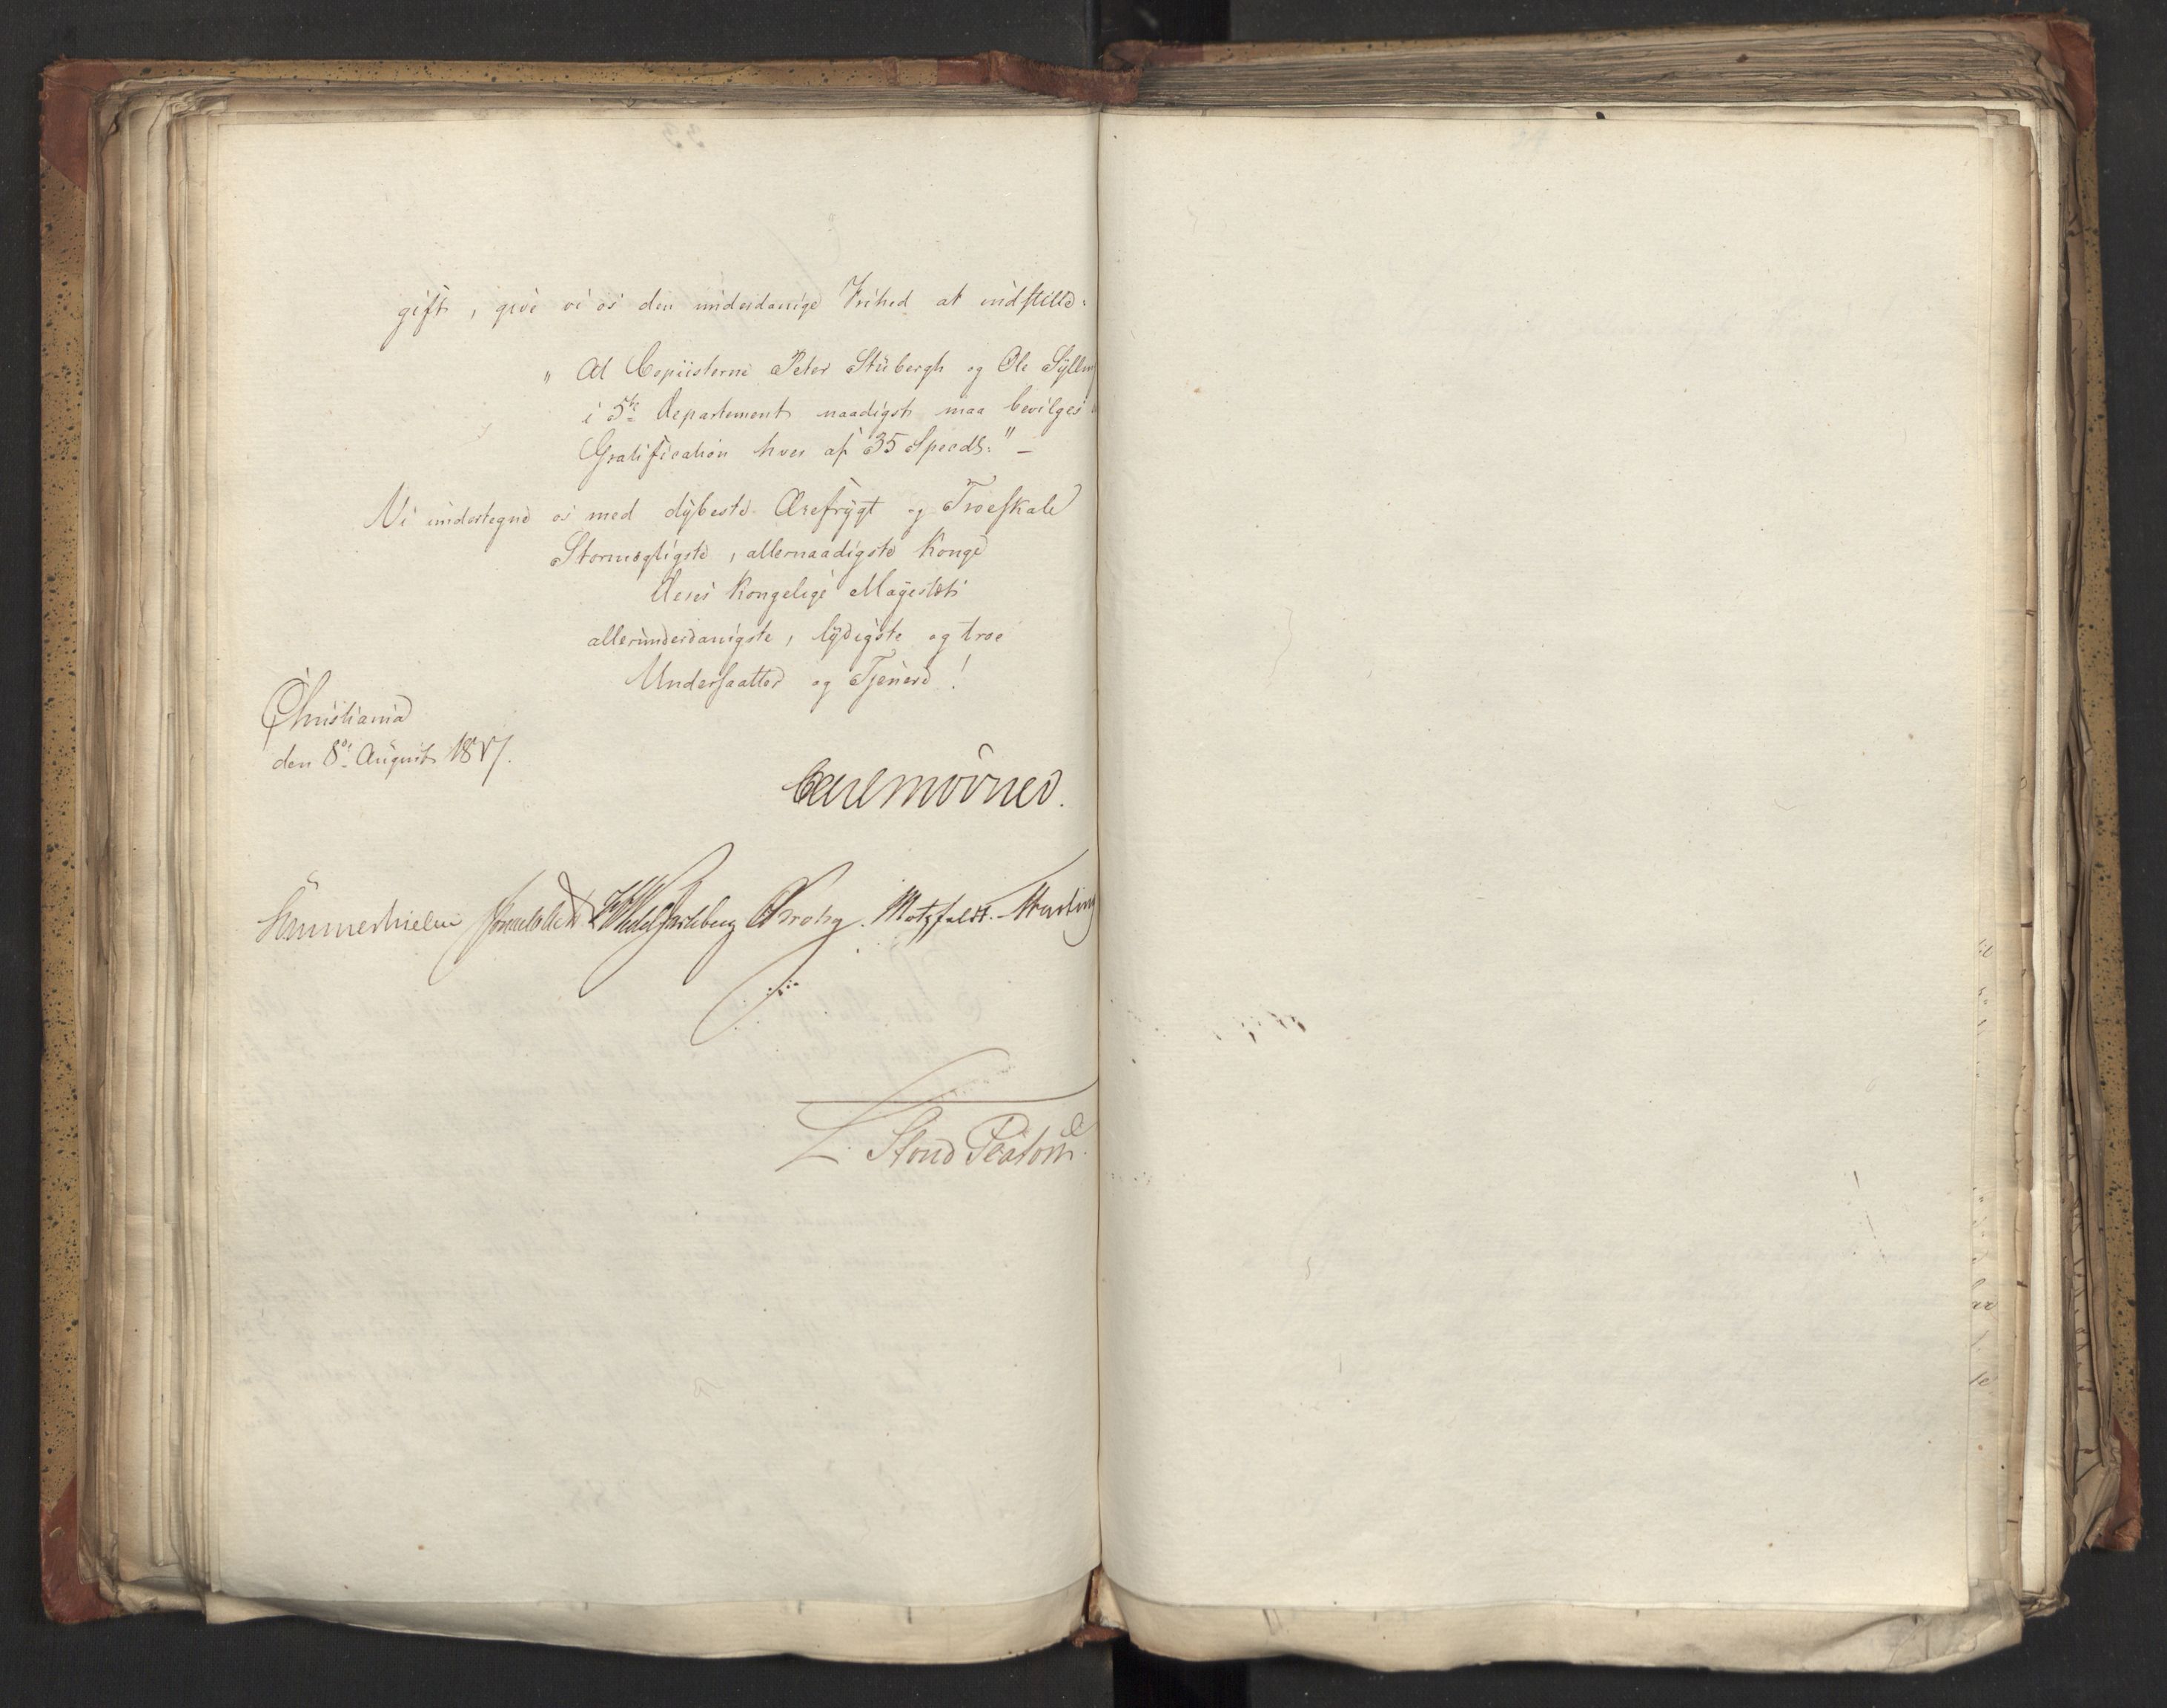 gift, give vi os den underdanige Frihed at indstille:
„ At Copiisterne Peter Stübergh og Ole Sylling
i 5te Departement naadigst maa bevilges
Gratification hver af 35 Specd." –
Vi undertegne os med dybeste Ærefrygt og Troeskab
Stormægtigste, allernaadigste Konge
Deres Kongelige Mayestæts
allerunderdanigste, lydigste og troe
Undersaatter og Tjenere!
Christiania
den 8de August 1817.
Carl Mörner.
Sommerhielm Wedel Jarlsberg Krohg. Motzfeldt.
L. Stoud Platou